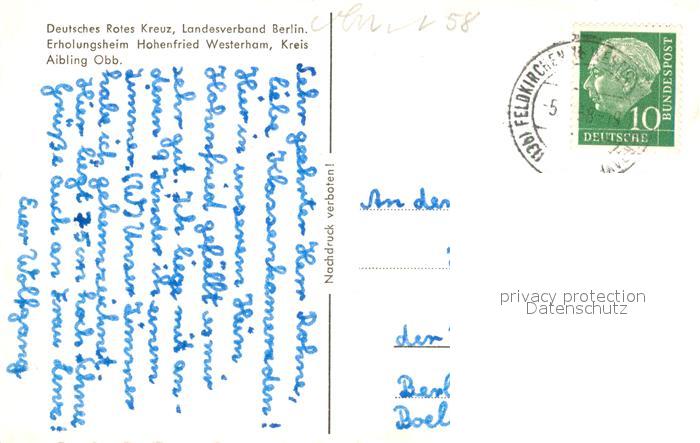 Deutsches Rotes Kreuz, Landesverband Berlin.
Erholungsheim Hohenfried Westerham, Kreis
Aibling Obb.
58
Sehr geehrter Herr Rohne,
liebe Klassenkameraden!
Hier in unserem Heim
Hohenfried gefällt es mir
sehr gut. Ich liege mit an-
deren 9 Kinder in einem
Zimmer. (W) Unser Zimmer
habe ich gekennzeichnet.
Hier liegt 75 cm hoch Schnee
Grüße auch an Frau
Euer Wolfgang
Nachdruck verboten!
An den
den
Berl
Boel
(13b) FELDKIRCHEN
5
10
DEUTSCHE
BUNDESPOST
privacy protection
Datenschutz